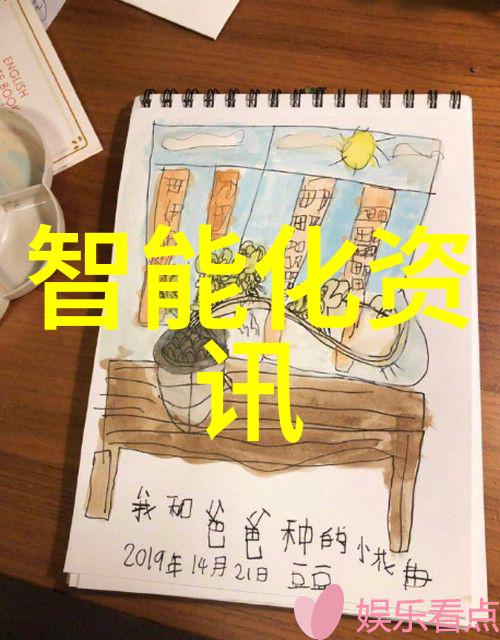 ENGLISH
智能化资
讯
我和爸爸种的小花由
2019年14月21日 豆豆
娱乐看点